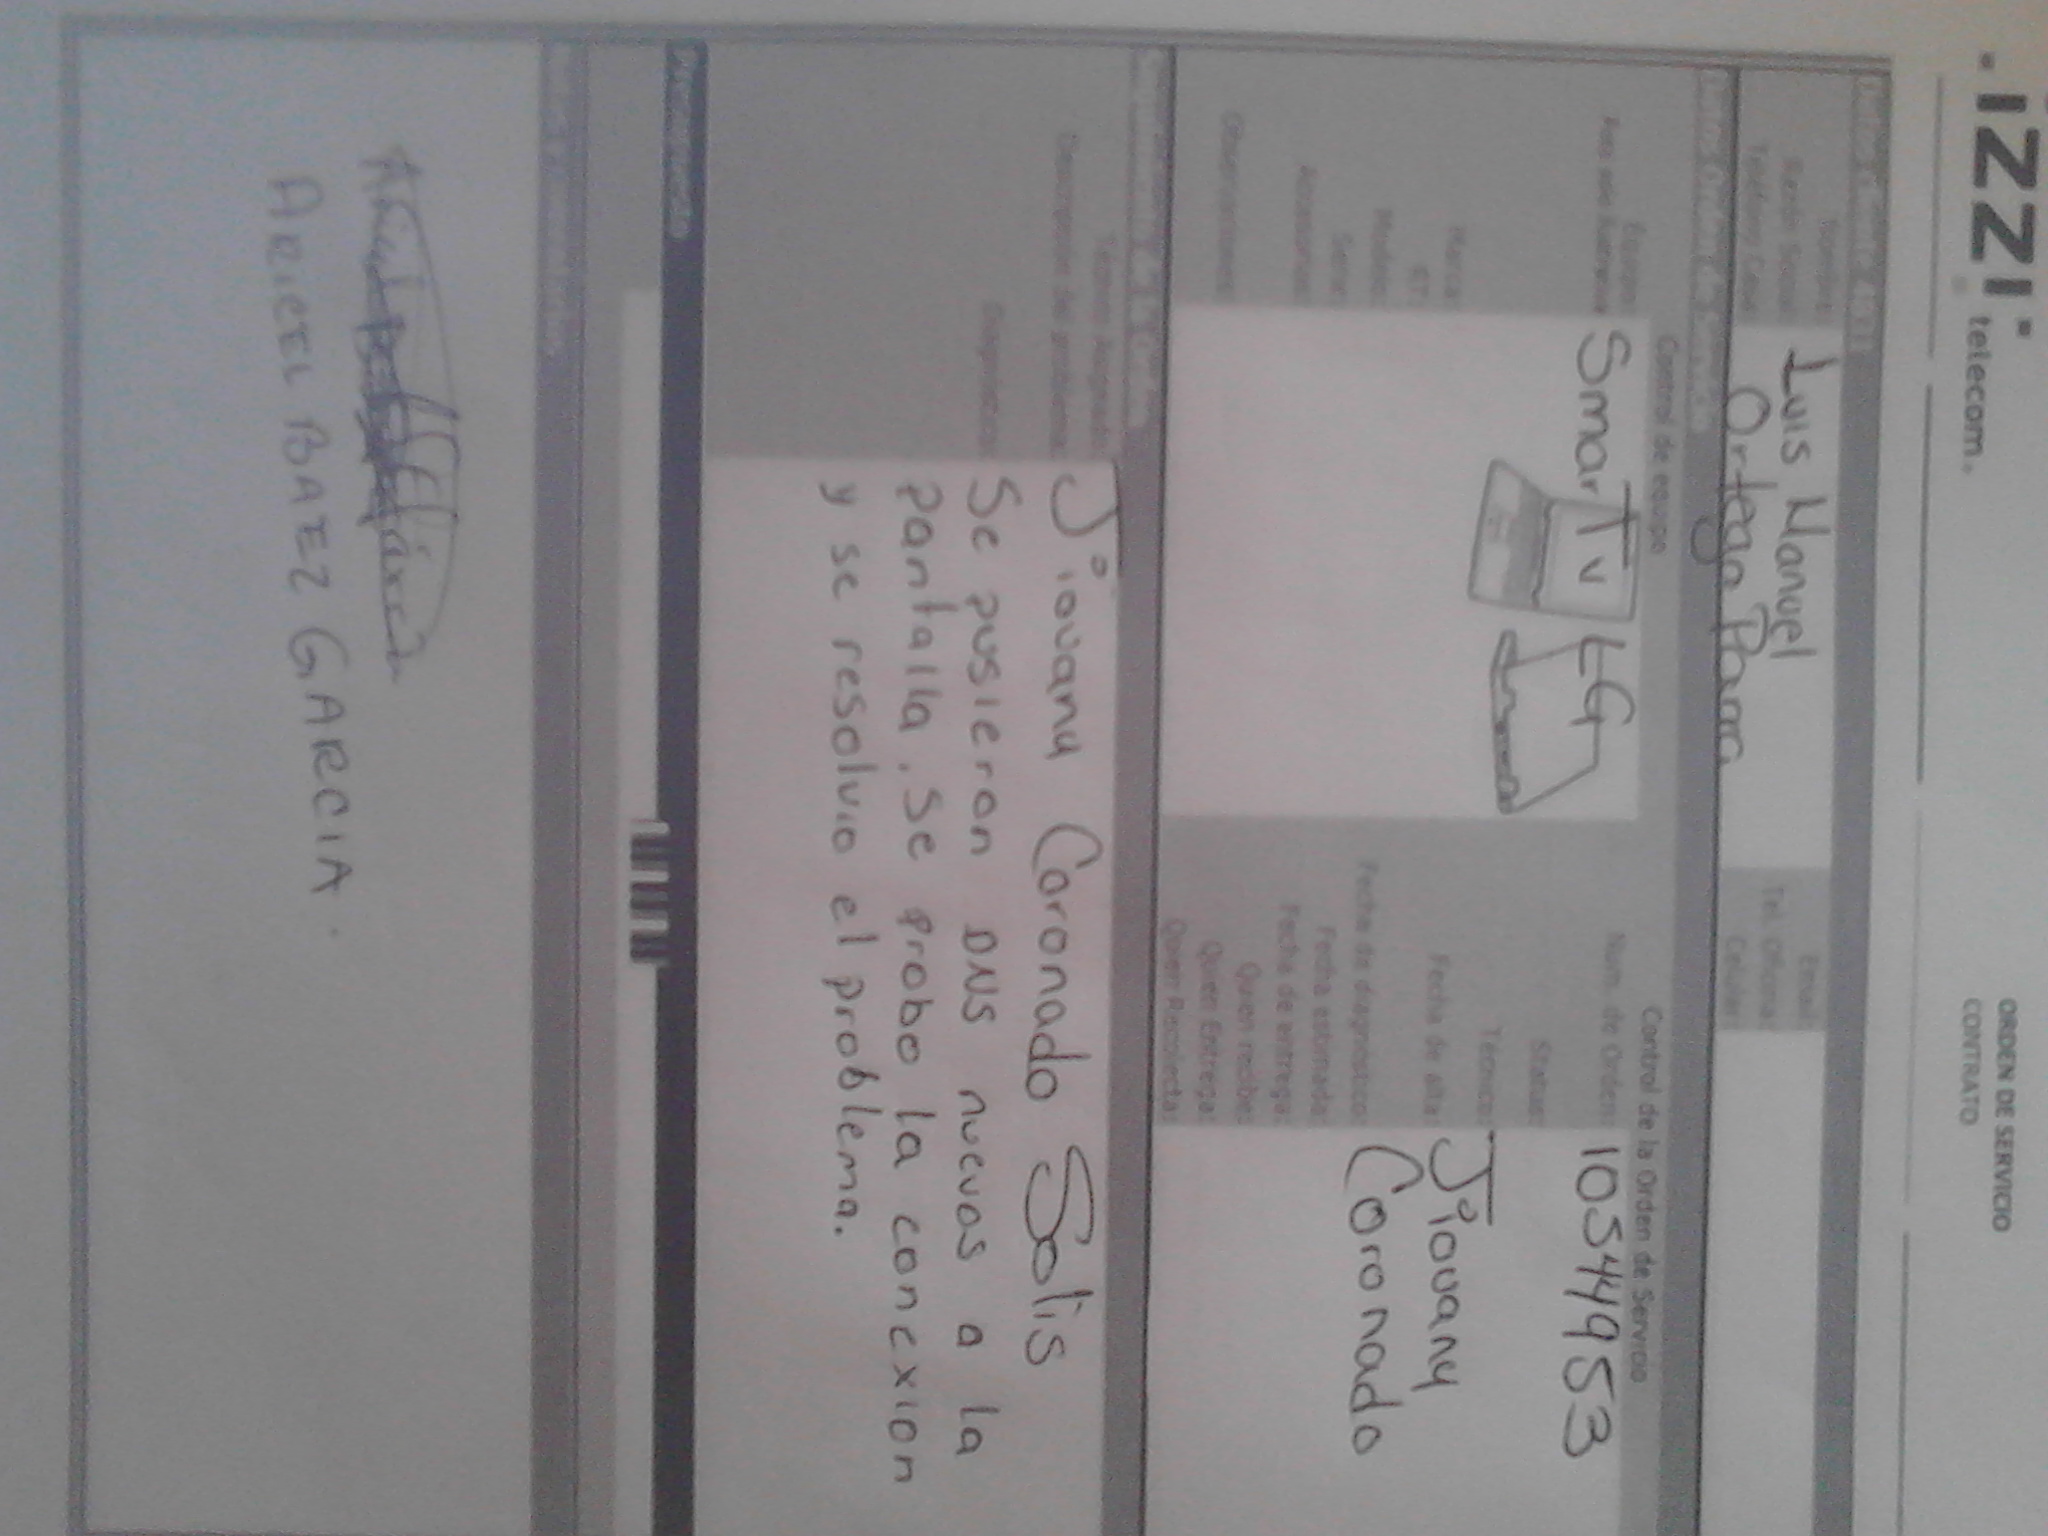 izzi telecom.
ORDEN DE SERVICIO
CONTRATO
Nombre Luis Manuel
Razón Social
Teléfono Casa Ortega Parra
Email
Tel. Oficina
Celular
Control de equipo
Equipo Smart Tv LG
Marca
Modelo
Serie
Accesorios
Observaciones
Control de la Orden de Servicio
Num. de Orden: 105449953
Status:
Técnico: Jiovany
Fecha de alta: Coronado
Fecha de diagnóstico:
Fecha estimada:
Fecha de entrega:
Quien recibe:
Quien Entrega:
Quien Recolecta:
Técnico Asignado: Jiovany Coronado Solis
Descripción del problema:
Diagnóstico: Se pusieron DNS nuevos a la
pantalla. Se probo la conexion
y se resolvio el problema.
Presupuesto
ARICEL BAEZ GARCIA.